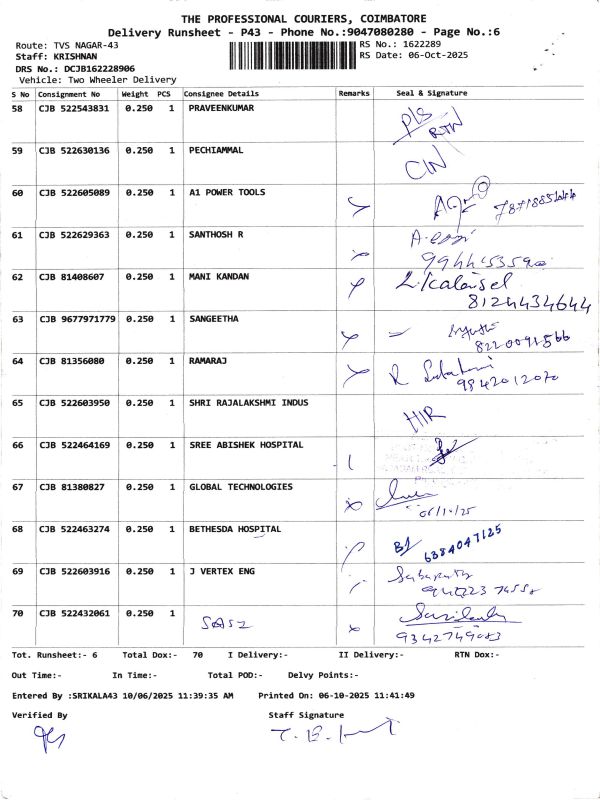 THE PROFESSIONAL COURIERS, COIMBATORE
Delivery Runsheet - P43 - Phone No.:9047080280 - Page No.:6
Route: TVS NAGAR-43
RS No.: 1622289
Staff: KRISHNAN
RS Date: 06-Oct-2025
DRS No.: DCJB162228906
Vehicle: Two Wheeler Delivery
S No Consignment No Weight PCS Consignee Details Remarks Seal & Signature
58 CJB 522543831 0.250 1 PRAVEENKUMAR
RTN
59 CJB 522630136 0.250 1 PECHIAMMAL
CIN
60 CJB 522605089 0.250 1 A1 POWER TOOLS
61 CJB 522629363 0.250 1 SANTHOSH R
62 CJB 81408607 0.250 1 MANI KANDAN
8124434644
63 CJB 9677971779 0.250 1 SANGEETHA
8220091566
64 CJB 81356080 0.250 1 RAMARAJ
9842012070
65 CJB 522603950 0.250 1 SHRI RAJALAKSHMI INDUS
HIR
66 CJB 522464169 0.250 1 SREE ABISHEK HOSPITAL
67 CJB 81380827 0.250 1 GLOBAL TECHNOLOGIES
06/10/25
68 CJB 522463274 0.250 1 BETHESDA HOSPITAL
6384047125
69 CJB 522603916 0.250 1 J VERTEX ENG
70 CJB 522432061 0.250 1
9342749083
Tot. Runsheet:- 6 Total Dox:- 70 I Delivery:- II Delivery:- RTN Dox:-
Out Time:- In Time:- Total POD:- Delvy Points:-
Entered By :SRIKALA43 10/06/2025 11:39:35 AM Printed On: 06-10-2025 11:41:49
Verified By Staff Signature